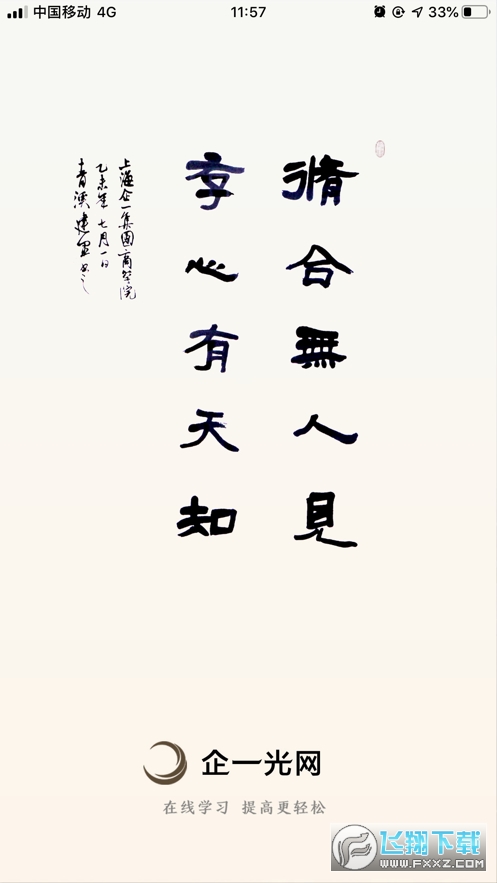 中国移动 4G 11:57 33%
脩合無人見
存心有天知
上海企一集團商学院
乙未年七月一日
企一光网
在线学习 提高更轻松
飞翔下载
WWW.FXXZ.COM